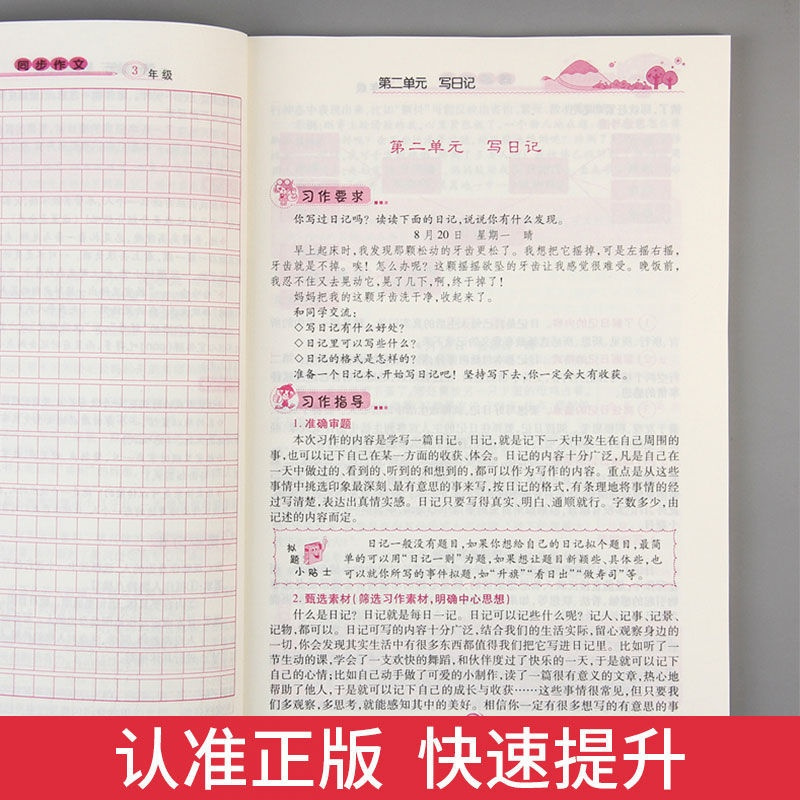 同步作文 3年级
第二单元 写日记
第二单元 写日记
习作要求
你写过日记吗？读读下面的日记，说说你有什么发现。
8月20日 星期一 晴
早上起床时，我发现那颗松动的牙齿更松了。我想把它摇掉，可是左摇右摇，
牙齿就是不掉。唉！怎么办呢？这颗摇摇欲坠的牙齿让我感觉很难受。晚饭前，
我忍不住又去晃动它，晃了几下，啊，终于掉了！
妈妈把我的这颗牙齿洗干净，收起来了。
和同学交流：
◇写日记有什么好处？
◇日记里可以写些什么？
◇日记的格式是怎样的？
准备一个日记本，开始写日记吧！坚持写下去，你一定会大有收获。
习作指导
1. 准确审题
本次习作的内容是学写一篇日记。日记，就是记下一天中发生在自己周围的
事，也可以记下自己在某一方面的收获、体会。日记的内容十分广泛，凡是自己在
一天中做过的、看到的、听到的和想到的，都可以作为写作的内容。重点是从这些
事情中挑选印象最深刻、最有意思的事来写，按日记的格式，有条理地将事情的经
过写清楚，表达出真情实感。日记只要写得真实、明白、通顺就行。字数多少，由
记述的内容而定。
拟题小贴士
日记一般没有题目，如果你想给自己的日记拟个题目，最简
单的可以用“日记一则”为题，如果想让题目新颖些、具体些，也
可以就你所写的事件拟题，如“升旗”“看日出”“做寿司”等。
2. 甄选素材（筛选习作素材，明确中心思想）
什么是日记？日记就是每日一记。日记可以记些什么呢？记人、记事、记景、
记物，都可以。日记可写的内容十分广泛，结合我们的生活实际，留心观察身边的
一切，你会发现其实生活中有很多东西都值得我们把它写进日记里。比如听了一
节生动的课，学会了一支欢快的舞蹈，和伙伴度过了快乐的一天，于是就可以记下
自己的心情；比如自己动手做了可爱的小制作，读了一篇很有意义的文章，热心地
帮助了他人，于是就可以记下自己的成长与收获……这些事情很常见，但只要我
们多观察，多思考，就能感知其中的美好。相信你一定有很多想写的有意思的事
认准正版 快速提升